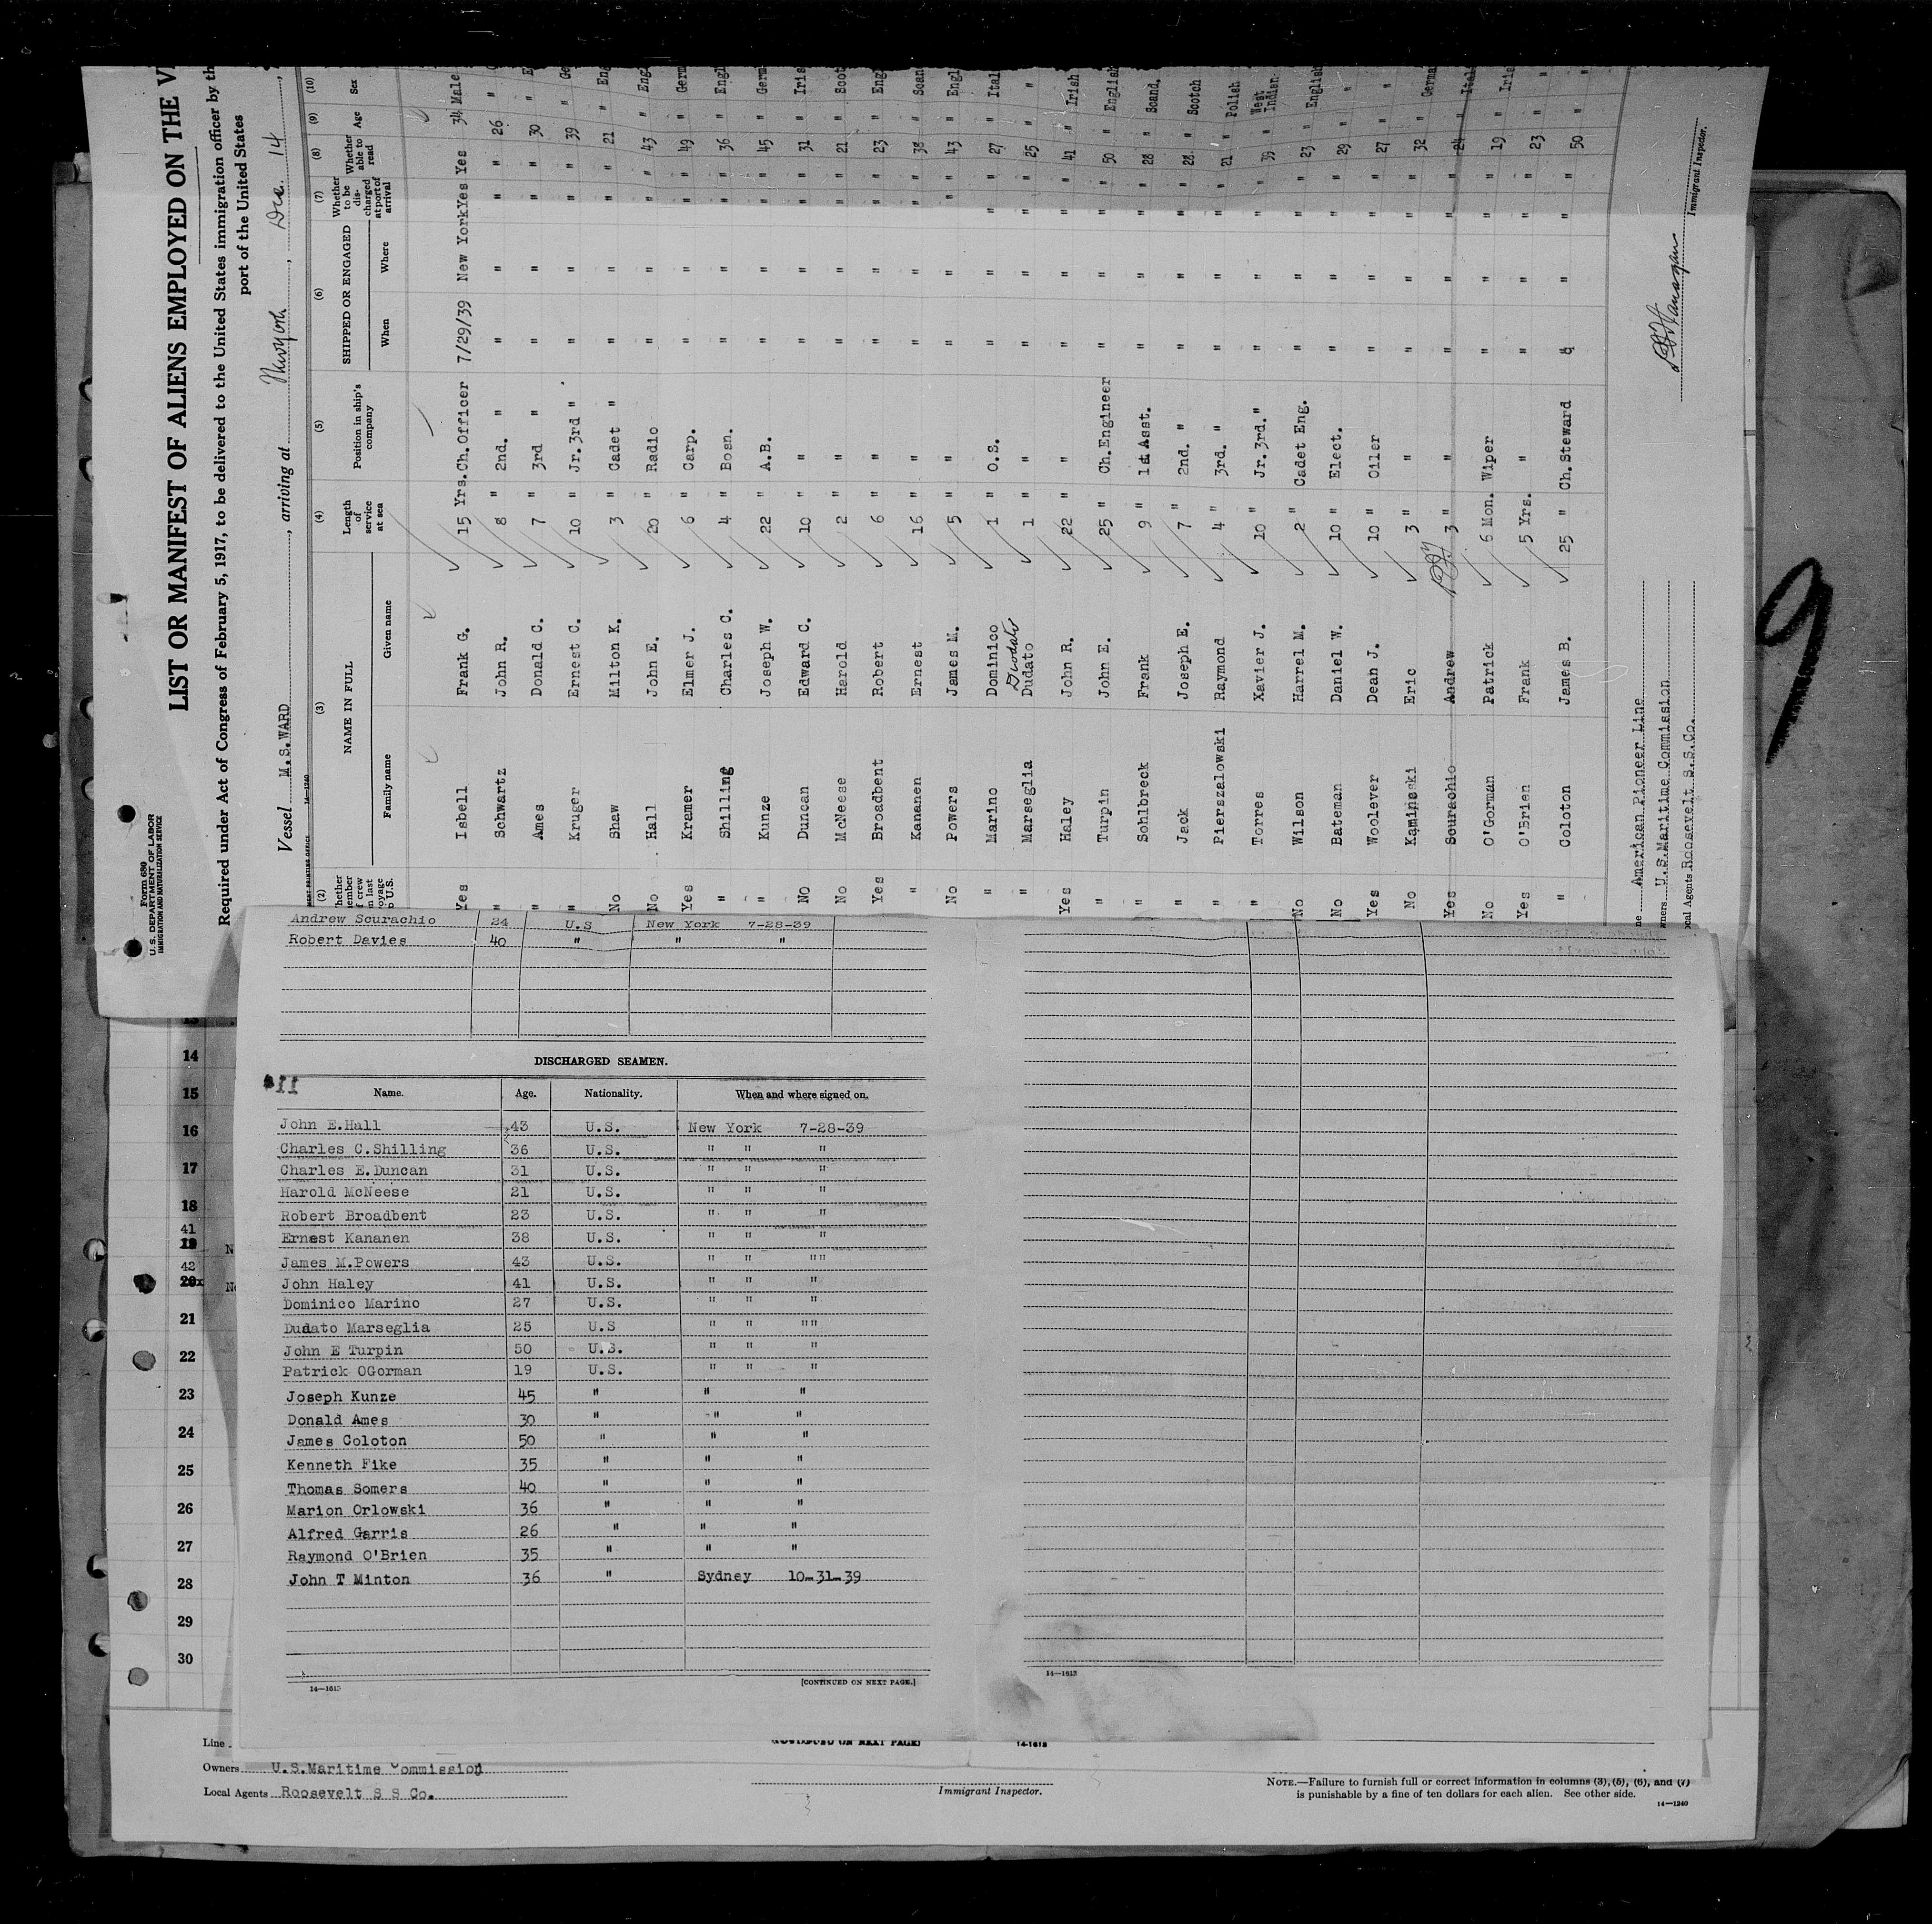 Form 680
U. S. DEPARTMENT OF LABOR
IMMIGRATION AND NATURALIZATION SERVICE
LIST OR MANIFEST OF ALIENS EMPLOYED ON THE
Required under Act of Congress of February 5, 1917, to be delivered to the United States immigration officer by th
port of the United States
Vessel M.S.WARD , arriving at New York , Dec. 14 ,
14—1240
(2) (3) (4) (5) (6) (7) (8) (9) (10)
NAME IN FULL Length of service at sea Position in ship's company SHIPPED OR ENGAGED Whether to be discharged at port of arrival Whether able to read Age Sex
Family name Given name When Where
Yes Isbell Frank G. 15 Yrs. Ch.Officer 7/29/39 New York Yes Yes 34 Male
" Schwartz John R. 8 " 2nd. " " " " " 26 "
" Ames Donald C. 7 " 3rd " " " " " 30 "
" Kruger Ernest C. 10 " Jr.3rd " " " " " 39 "
No Shaw Milton K. 3 " Cadet " " " " " 21 "
No Hall John E. 20 " Radio " " " " 43 "
Yes Kramer Elmer J. 6 " Carp. " " " " 49 "
" Shilling Charles C. 4 " Bosn. " " " " 36 "
" Kunze Joseph W. 22 " A.B. " " " " 45 "
No Duncan Edward C. 10 " " " " " " 31 "
No McNeese Harold 2 " " " " " " 21 "
Yes Broadbent Robert 6 " " " " " " 23 "
" Kananen Ernest 16 " " " " " " 38 "
No Powers James M. 5 " " " " " " 43 "
" Marino Dominico 1 " O.S. " " " " 27 "
Diodato
" Marseglia Dudato 1 " " " " " " 25 "
Yes Haley John R. 22 " " " " " " 41 "
" Turpin John E. 25 " Ch.Engineer " " " " 50 "
" Sohlbreck Frank 9 " 1st Asst. " " " " 28 "
" Jack Joseph E. 7 " 2nd. " " " " " 28 "
" Pierszalowski Raymond 4 " 3rd. " " " " " 21 "
" Torres Xavier J. 10 " Jr.3rd." " " " " 39 "
No Wilson Harrel M. 2 " Cadet Eng. " " " " 23 "
No Bateman Daniel W. 10 " Elect. " " " " 29 "
Yes Woolever Dean J. 10 " Oiler " " " " 27 "
No Kaminski Eric 3 " " " " " " 32 "
Yes Scurachio Andrew 3 " " " " " " 24 "
No O'Gorman Patrick 6 Mon. Wiper " " " " 19 "
Yes O'Brien Frank 5 Yrs. " " " " " 23 "
" Coloton James B. 25 " Ch.Steward " " " " 50 "
American Pioneer Line
U.S.Maritime Commission
Local Agents Roosevelt S.S.Co.
Immigrant Inspector.
9
Andrew Scurachio 24 U.S New York 7-28-39
Robert Davies 40 " " "
DISCHARGED SEAMEN.
Name. Age. Nationality. When and where signed on.
John E.Hall 43 U.S. New York 7-28-39
Charles C.Shilling 36 U.S. " " "
Charles E.Duncan 31 U.S. " " "
Harold McNeese 21 U.S. " " "
Robert Broadbent 23 U.S. " " "
Ernest Kananen 38 U.S. " " "
James M.Powers 43 U.S. " " ""
John Haley 41 U.S. " " "
Dominico Marino 27 U.S. " " "
Dudato Marseglia 25 U.S " " ""
John E Turpin 50 U.S. " " "
Patrick OGorman 19 U.S. " " "
Joseph Kunze 45 " " "
Donald Ames 30 " " "
James Coloton 50 " " "
Kenneth Fike 35 " " "
Thomas Somers 40 " " "
Marion Orlowski 36 " " "
Alfred Garris 26 " " "
Raymond O'Brien 35 " " "
John T Minton 36 " Sydney 10-31-39
14—1613 [CONTINUED ON NEXT PAGE.]
14—1613
14
15
16
17
18
41
19
42
20x
21
22
23
24
25
26
27
28
29
30
Line
Owners U.S.Maritime Commission
Local Agents Roosevelt S S Co.
14-1613
Immigrant Inspector.
NOTE.—Failure to furnish full or correct information in columns (3), (5), (6), and (7)
is punishable by a fine of ten dollars for each alien. See other side.
14—1240